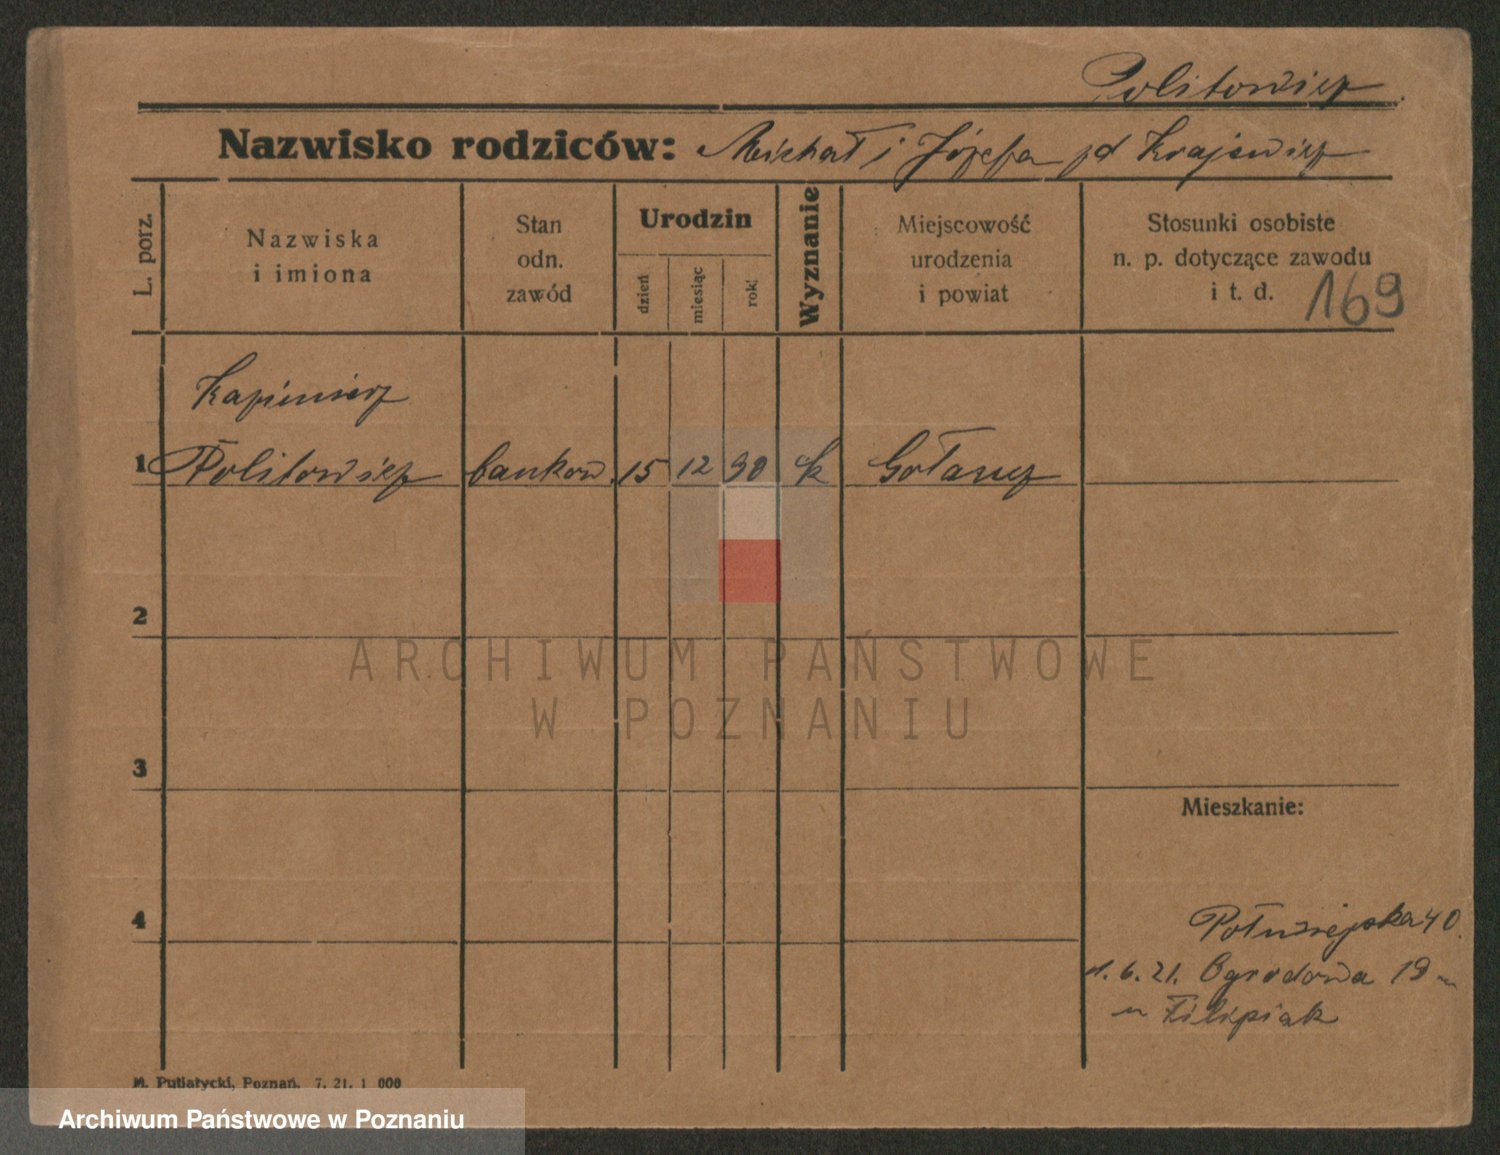 Politowicz
Nazwisko rodziców: Michał i Józefa zd Krajewicz
L. porz.
Nazwiska
i imiona
Stan
odn.
zawód
Urodzin
dzień
miesiąc
rok
Wyznanie
Miejscowość
urodzenia
i powiat
Stosunki osobiste
n. p. dotyczące zawodu
i t. d.
169
Kazimierz
1 Politowicz bankow. 15 12 90 k Gołańcz
2
3
Mieszkanie:
4
40.
1. 6. 21. Ogrodowa 19
u Filipiak
M. Putiatycki, Poznań. 7. 21. 1 000
ARCHIWUM PAŃSTWOWE
W POZNANIU
Archiwum Państwowe w Poznaniu